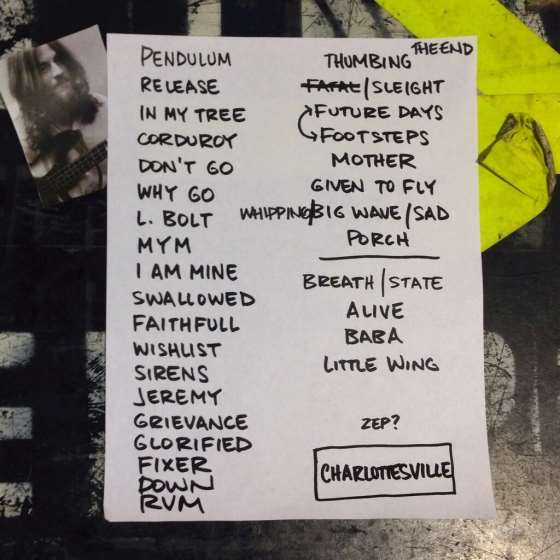 PENDULUM
RELEASE
IN MY TREE
CORDUROY
DON'T GO
WHY GO
L. BOLT
MYM
I AM MINE
SWALLOWED
FAITHFULL
WISHLIST
SIRENS
JEREMY
GRIEVANCE
GLORIFIED
FIXER
DOWN
RVM
THUMBING THE END
FATAL/SLEIGHT
FUTURE DAYS
FOOTSTEPS
MOTHER
GIVEN TO FLY
WHIPPING/BIG WAVE/SAD
PORCH
BREATH/STATE
ALIVE
BABA
LITTLE WING
ZEP?
CHARLOTTESVILLE